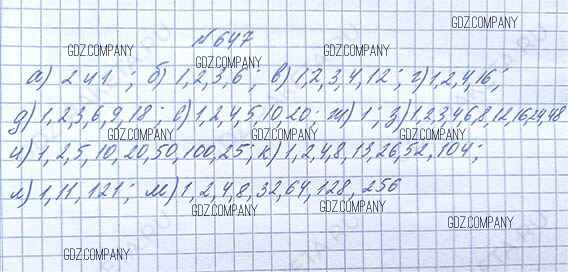 №647
а) 2 и 1; б) 1,2,3,6; в) 1,2,3,4,12; г) 1,2,4,16;
д) 1,2,3,6,9,18; е) 1,2,4,5,10,20; ж) 1; з) 1,2,3,4,6,8,12,16,24,48
и) 1,2,5,10,20,50,100,25; к) 1,2,4,8,13,26,52,104;
л) 1,11,121; м) 1,2,4,8,32,64,128,256
GDZ.COMPANY
GDZ.COMPANY
GDZ.COMPANY
GDZ.COMPANY
GDZ.COMPANY
GDZ.COMPANY
GDZ.COMPANY
GDZ.COMPANY
GDZ.COMPANY
GDZ.COMPANY
GDZ.COMPANY
GDZ.COMPANY